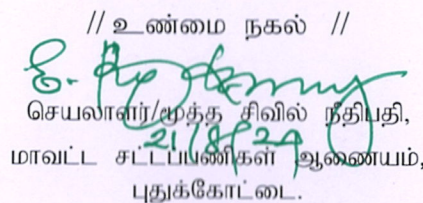 // உண்மை நகல் //
செயலாளர்/மூத்த சிவில் நீதிபதி,
21/8/24
மாவட்ட சட்டப்பணிகள் ஆணையம்,
புதுக்கோட்டை.